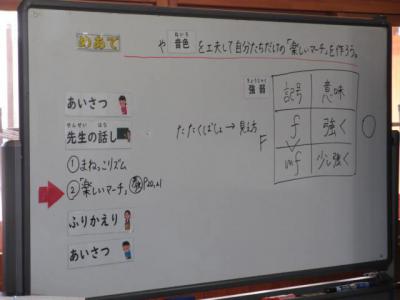 めあて
や音色を工夫して自分たちだけの「楽しいマーチ」を作ろう。
ねいろ
あいさつ
せんせい はな
先生の話し
①まねっこリズム
②「楽しいマーチ」 P20,21
ふりかえり
あいさつ
たたくばしょ→見え方
F
きょうじゃく
強弱
記号 意味
f 強く
mf 少し強く